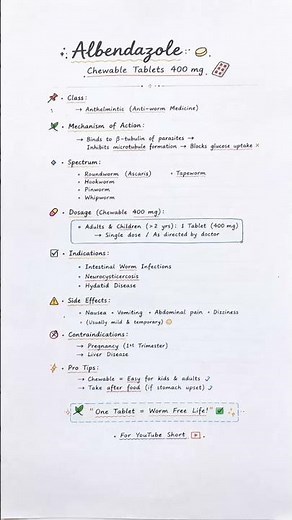 Albendazole
Chewable Tablets 400 mg
• Class:
→ Anthelmintic (Anti-worm Medicine)
• Mechanism of Action:
→ Binds to β-tubulin of parasites →
Inhibits microtubule formation → Blocks glucose uptake
• Spectrum:
• Roundworm (Ascaris) • Tapeworm
• Hookworm
• Pinworm
• Whipworm
• Dosage (Chewable 400 mg):
• Adults & Children (>2 yrs): 1 Tablet (400 mg)
→ Single dose / As directed by doctor
• Indications:
• Intestinal Worm Infections
• Neurocysticercosis
• Hydatid Disease
• Side Effects:
• Nausea • Vomiting • Abdominal pain • Dizziness
• (Usually mild & temporary)
• Contraindications:
→ Pregnancy (1st Trimester)
→ Liver Disease
• Pro Tips:
→ Chewable = Easy for kids & adults
→ Take after food (if stomach upset)
"One Tablet = Worm Free Life!"
• For YouTube Short